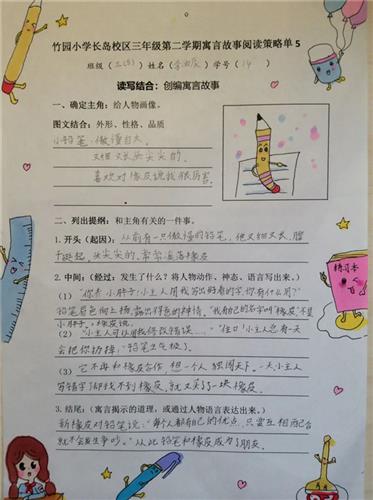 竹园小学长岛校区三年级第二学期寓言故事阅读策略单5
班级（三(5)）姓名（李）学号（14）
读写结合：创编寓言故事
一、确定主角：给人物画像。
图文结合：外形、性格、品质
小铅笔，傲慢自大。
又细又长头尖尖的。
喜欢对橡皮说我很厉害。
二、列出提纲：和主角有关的一件事。
1.开头（起因）：从前有一只傲慢的铅笔，他又细又长，
挺起，头尖尖的，常常欺落橡皮
2.中间：（经过：发生了什么？将人物动作、神态、语言写出来。）
（1）“你看小胖子!小主人用我写出好看的字，你有什么用？”
铅笔眉色向上扬，露出得意的神情。“我自己的名字叫‘橡皮’不是
小胖子。”橡皮说。
（2）“小主人可以用我修改错误……”“住口!小主人总有一天
会把你扔掉。”铅笔生气极了。
（3）它不再和橡皮合作，想一个人独闯天下。一天小主人
写错字却找不到橡皮，就又买了一块橡皮。
3.结尾：（寓言揭示的道理，或通过人物语言表达出来。）
新橡皮对铅笔说：“每个人都有自己的优点，只要互相配合
就不会发生争吵。”从此铅笔和橡皮成为了朋友。
练习本